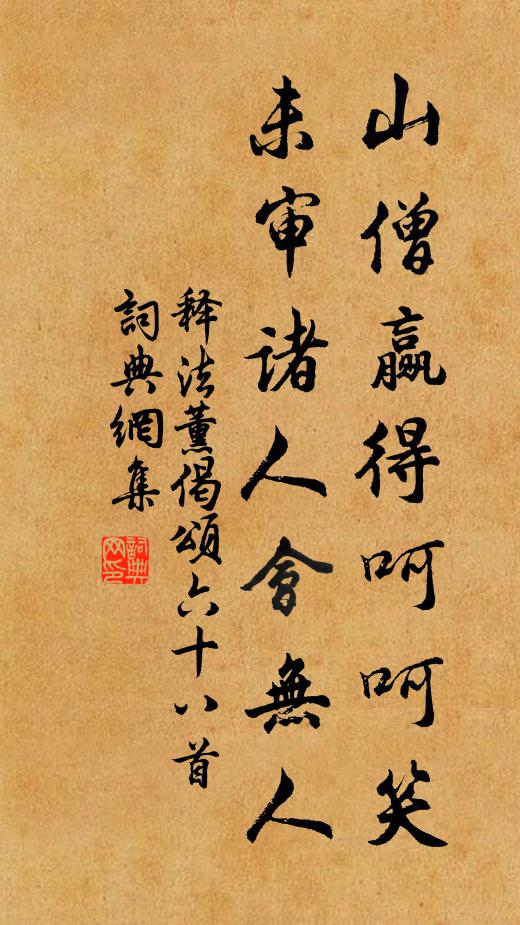 山僧贏得呵呵笑
未审诸人會無人
释法薰偈頌六十八首
詞典網集
詞典
网印